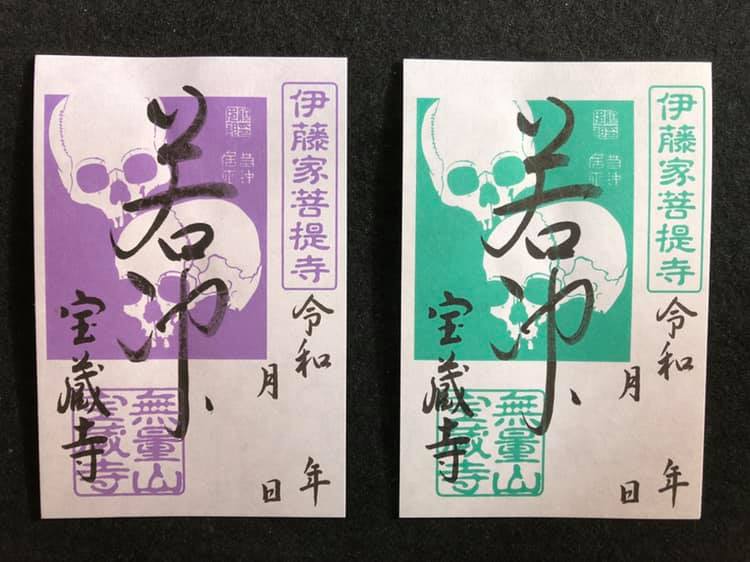 伊藤家菩提寺
令和 年
月 日
若冲
宝蔵寺
無量山
宝蔵寺
伊藤家菩提寺
令和 年
月 日
若冲
宝蔵寺
無量山
宝蔵寺